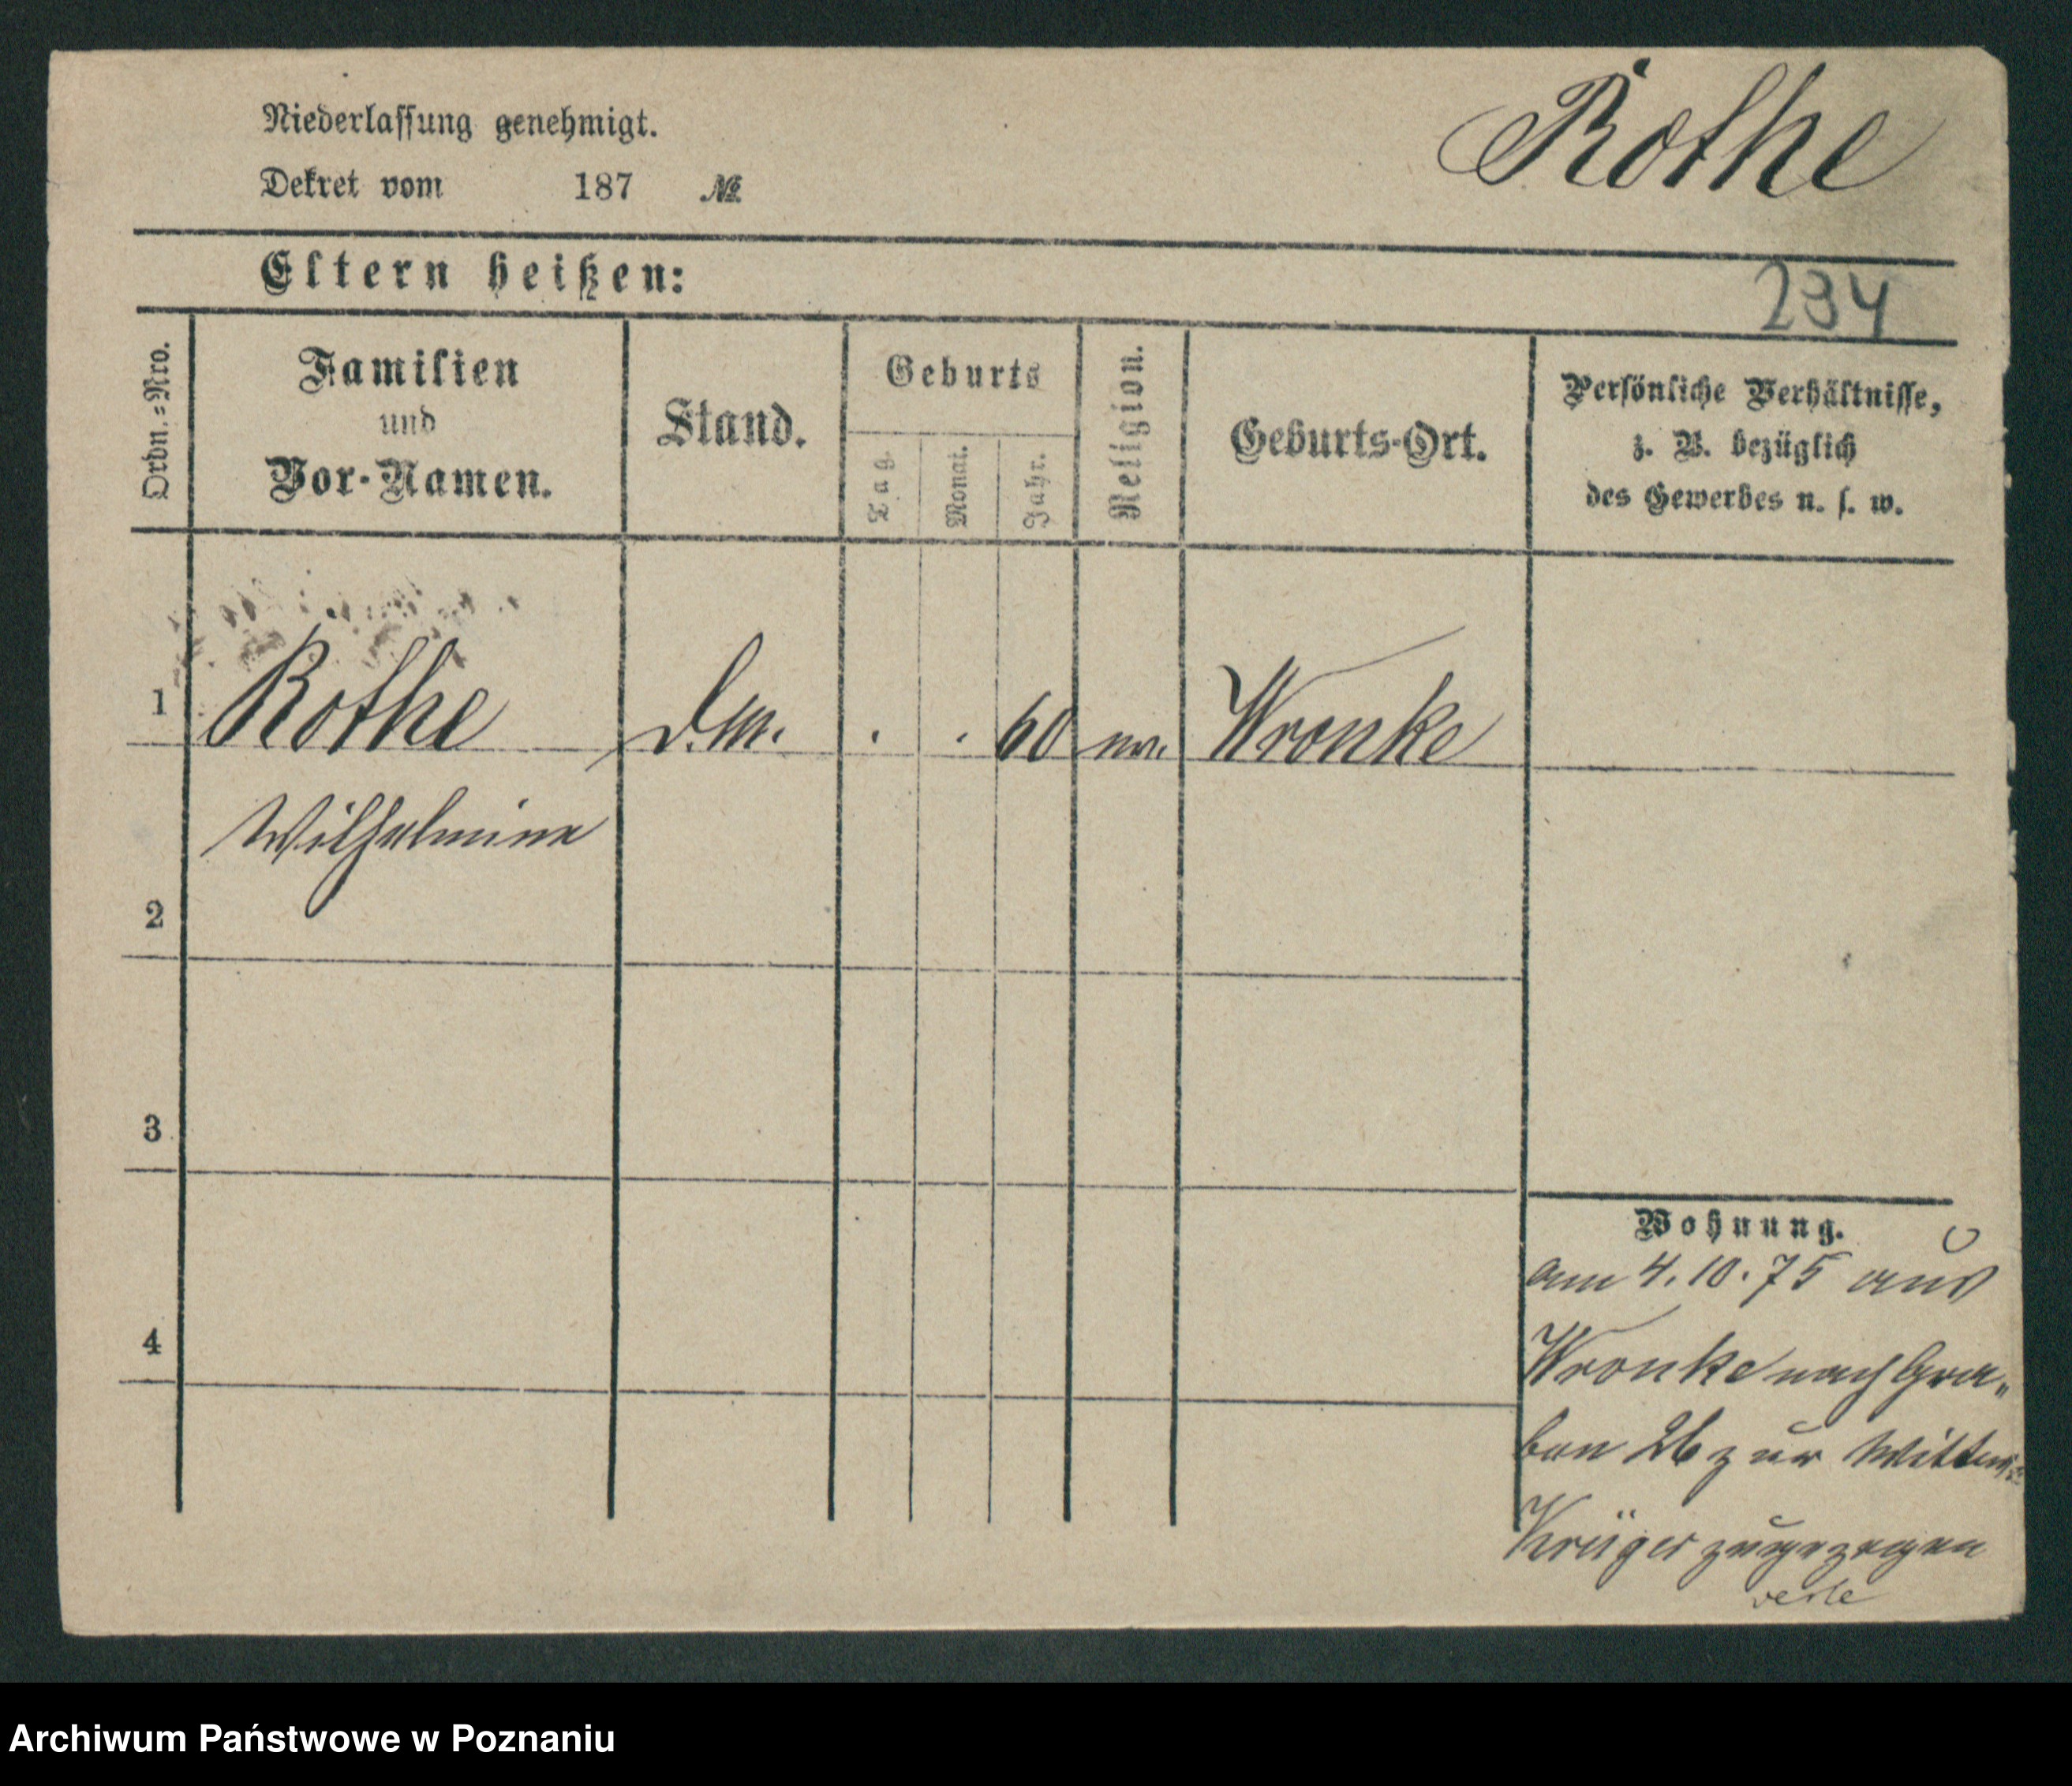 Niederlassung genehmigt.
Rothe
Dekret vom 187 №
Eltern heißen:
234
Ordn.=Nro.
Familien
und
Vor-Namen.
Stand.
Geburts
Tag.
Monat.
Jahr.
Religion.
Geburts-Ort.
Persönliche Verhältnisse,
z. B. bezüglich
des Gewerbes u. s. w.
1 Rothe D.M. . . 60 ev. Wronke
Wilhelmine
2
3
4
Wohnung.
am 4.10.75 aus
Wronke nach Gra-
ben 26 zur Wittwe
Krüger zugezogen
Archiwum Państwowe w Poznaniu